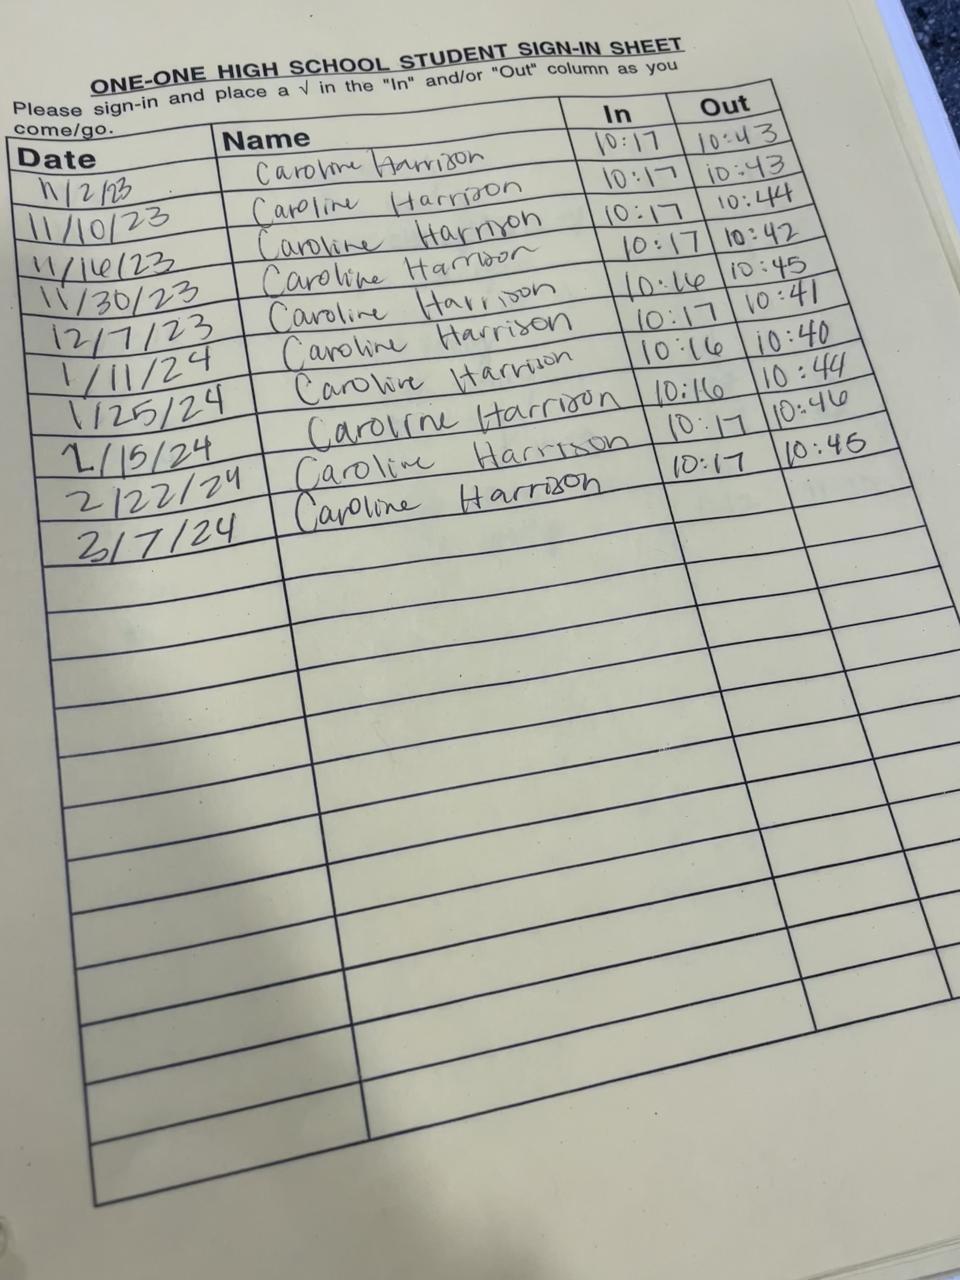 ONE-ONE HIGH SCHOOL STUDENT SIGN-IN SHEET
Please sign-in and place a √ in the "In" and/or "Out" column as you
come/go.
Date Name In Out
11/2/23 Caroline Harrison 10:17 10:43
11/10/23 Caroline Harrison 10:17 10:43
11/16/23 Caroline Harrison 10:17 10:44
11/30/23 Caroline Harrison 10:17 10:42
12/7/23 Caroline Harrison 10:16 10:45
1/11/24 Caroline Harrison 10:17 10:41
1/25/24 Caroline Harrison 10:16 10:40
2/15/24 Caroline Harrison 10:16 10:44
2/22/24 Caroline Harrison 10:17 10:46
3/7/24 Caroline Harrison 10:17 10:45